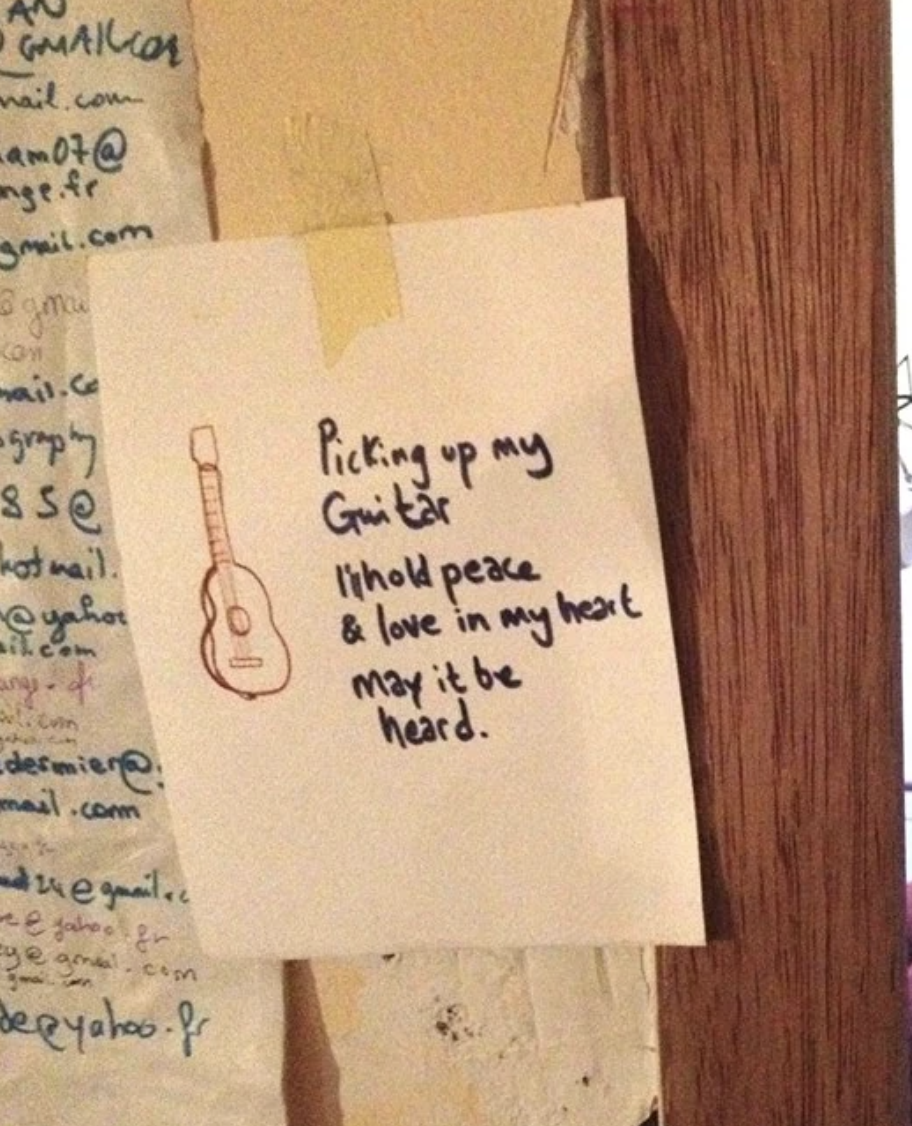 AN
GMAIL.COM
mail.com
am07@
nge.fr
gmail.com
@gmai
com
mail.co
graphy
85@
hotmail.
@yahoo
ail.com
ange.fr
ail.com
dermier@
mail.com
24@gmail.c
e@yahoo.fr
y@gmail.com
gmail.com
de@yahoo.fr
Picking up my
Guitar
hold peace
& love in my heart
may it be
heard.